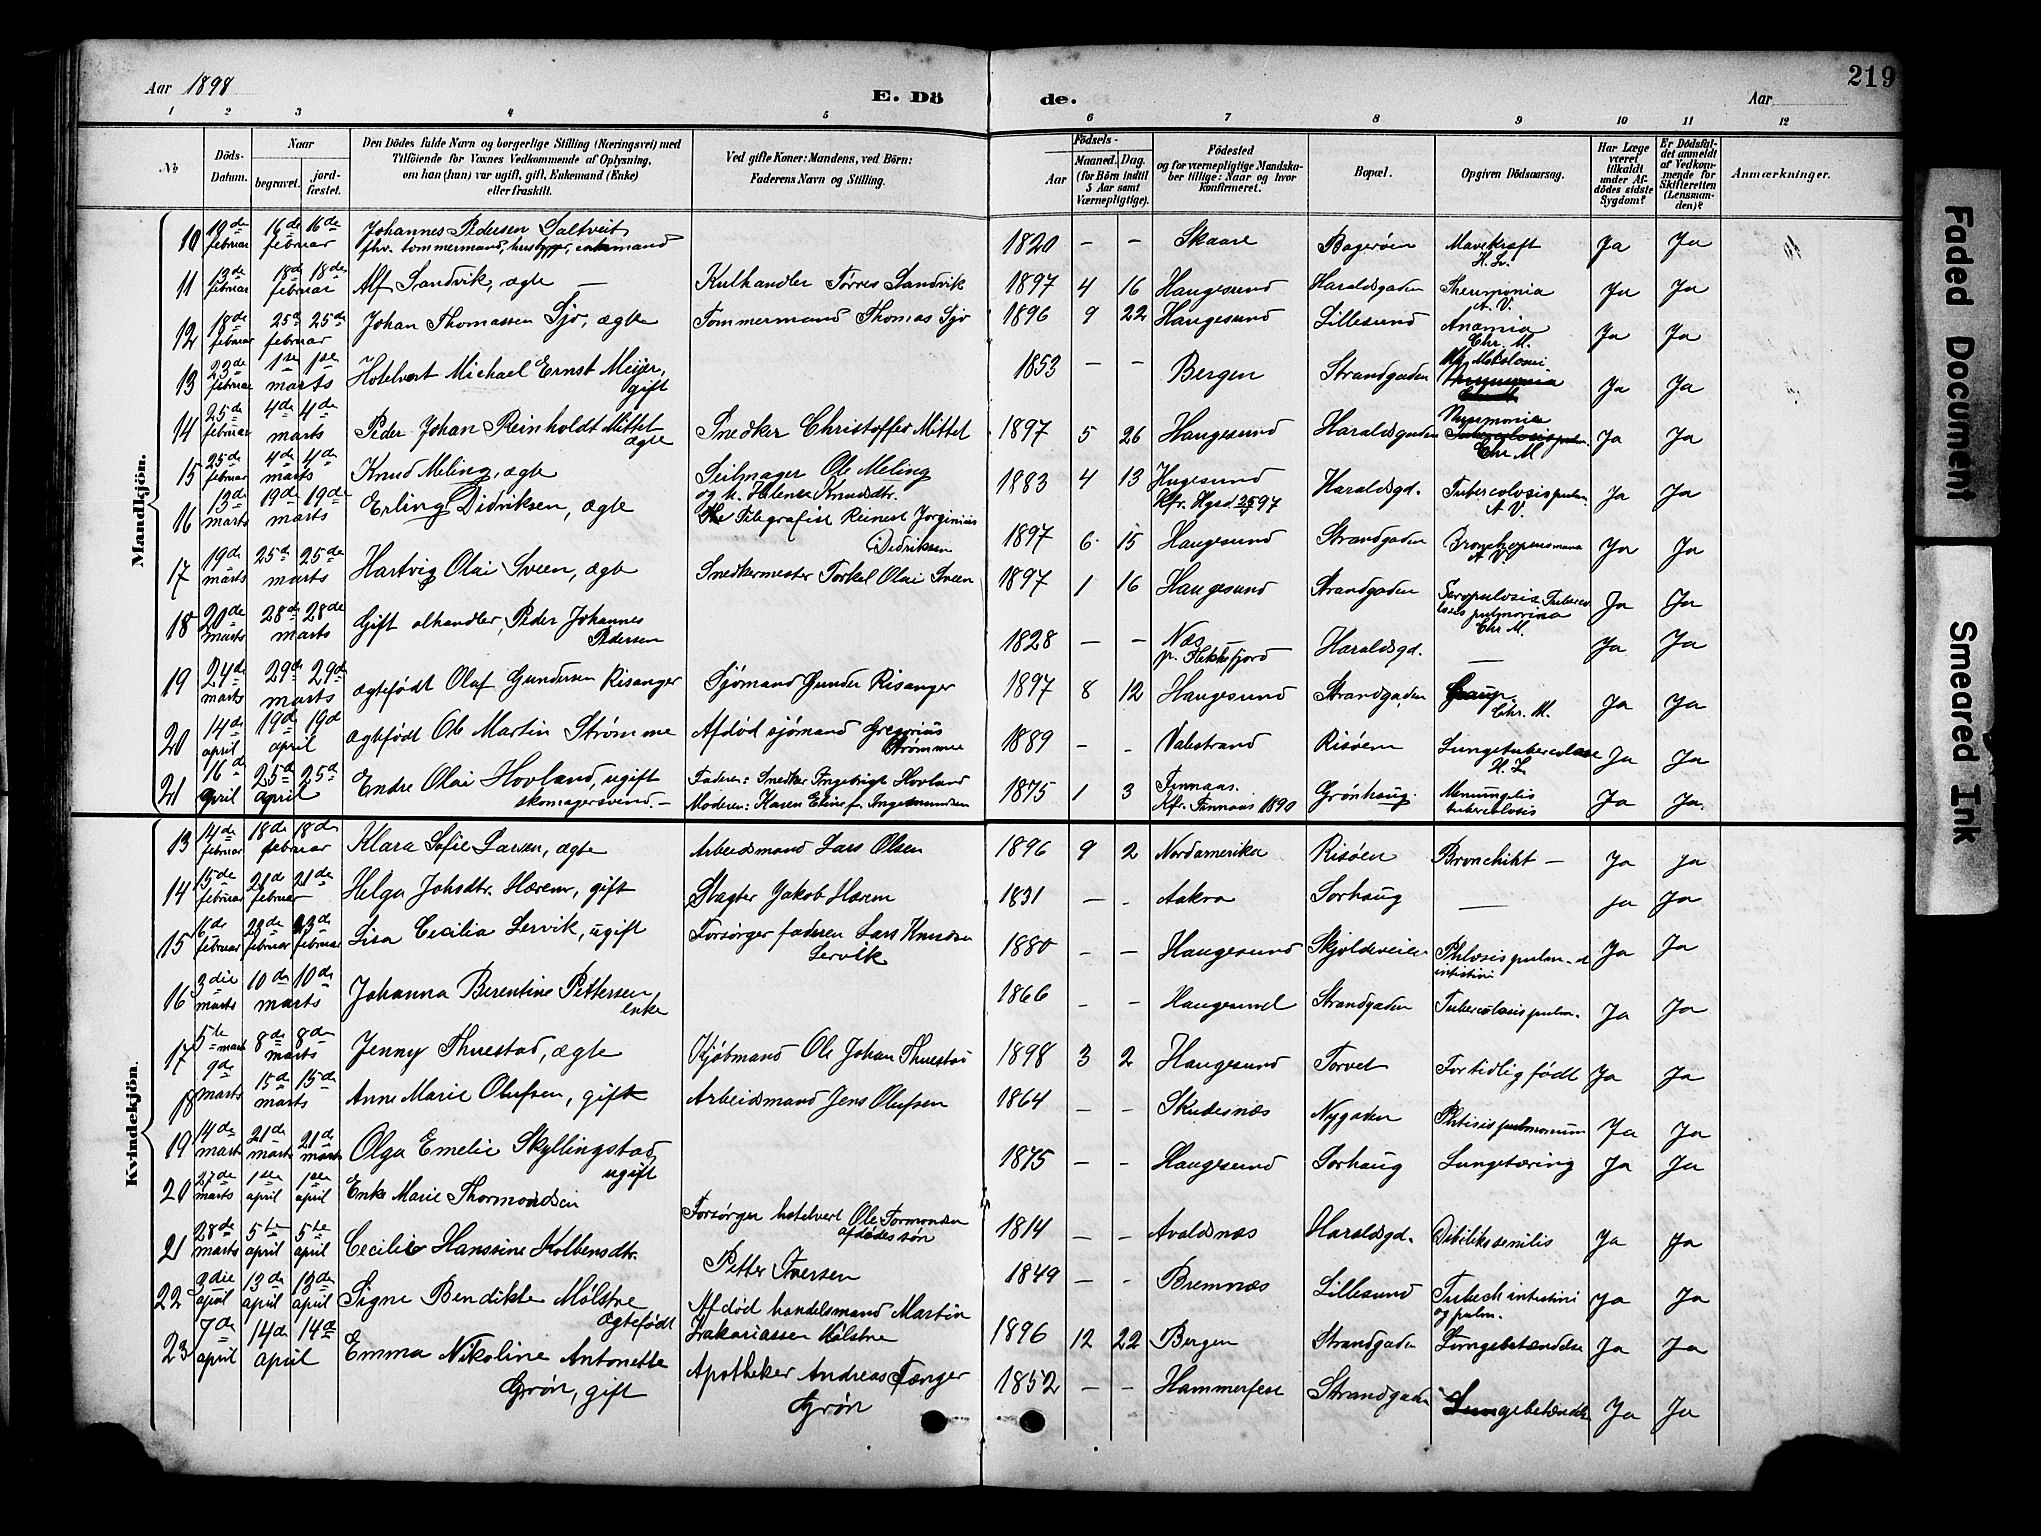 Aar 1898
E. Dö
de.
Aar
219
1 2 3 4 5 6 7 8 9 10 11 12
No
Döds-Datum.
Naar
begravet.
jord-fæstet.
Den Dödes fulde Navn og borgerlige Stilling (Næringsvei) med
Tilföiende for Voxnes Vedkommende af Oplysning,
om han (hun) var ugift, gift, Enkemand (Enke)
eller fraskilt.
Ved gifte Koner: Mandens, ved Börn:
Faderens Navn og Stilling.
Födsels-
Aar
Maaned. Dag.
(for Börn indtil
5 Aar samt
Værnepligtige).
Födested
og for værnepligtige Mandska-
ber tillige: Naar og hvor
konfirmeret.
Bopæl.
Opgiven Dödsaarsag.
Har Læge
været
tilkaldt
under Af-
dödes sidste
Sygdom?
Er Dödsfal-
det anmeldt
af Vedkom-
mende for
Skifteretten
(Lensman-
den)?
Anmærkninger.
Mandkjön.
10 19de februar 16de februar 16de Johannes Pedersen Saltveit 1820 – – Skaare Bagerøen Mavekræft H. L. Ja Ja
fhv. tømmermand,
11 13de februar 18de februar 18de Alf Sandvik, ægte – Kulhandler Tørres Sandvik 1897 4 16 Haugesund Haraldsgaden A. V. Ja Ja
12 18de februar 25de februar 25de Johan Thomassen Sjo, ægte Tømmermand Thomas Sjo 1896 9 22 Haugesund Lillesund Anæmia Chr. M. Ja Ja
13 23de februar 1ste marts 1ste Hotelvert Michael Ernst Meijer, gift 1853 – – Bergen Strandgaden Ja Ja
14 25de februar 4de marts 4de Peder Johan Reinholdt Mittet ægte Snedker Christoffer Mittet 1897 5 26 Haugesund Haraldsgaden Chr. M Ja Ja
15 25de februar 4de marts 4de Knud Meling, ægte Seilmager Ole Meling 1883 4 13 Haugesund Haraldsgd. Tuberculosis pulm. A. V. Ja Ja
og h. Helene Knudsdtr. Kfr. Hgsd.
16 13de marts 19de marts 19de Erling Didriksen, ægte Telegrafist Reinert Jorginius Didriksen 1897 6 15 Haugesund Strandgaden A. V. Ja Ja
17 19de marts 25de marts 25de Hartvig Olai Sveen, ægte Snedkermester Torkel Olai Sveen 1897 1 16 Haugesund Strandgaden Chr. M. Ja Ja
18 20de marts 28de marts 28de Gift ølhandler, Peder Johannes Pedersen 1828 – – Næs Haraldsgd. – Ja Ja
19 24de marts 29de marts 29de ægtefødt Olaf Gundersen Risanger Sjømand Gunder Risanger 1897 8 12 Haugesund Strandgaden Chr. M. Ja Ja
20 14de april 19de april 19de ægtefødt Ole Martin Strømme Afdød sjømand Gregorius Strømme 1889 – – Valestrand Risøen Lungetuberculose H. L Ja Ja
21 16de april 25de april 25de Endre Olai Hovland, ugift skomagersvend. – Faderen: Snedker Ingebrigt Hovland 1875 1 3 Finnaas. Grønhaug. tuberculosis Ja Ja.
Moderen: Karen Eline f. Ingemundsen Kfr. Finnaas 1890
Kvindekjön.
13 14de februar 18de februar 18de Klara Sofie Larsen, ægte Arbeidsmand Lars Olsen 1896 9 2 Nordamerika Risøen Bronchikt – Ja Ja
14 15de februar 21de februar 21de Helga Johsdtr. Hærem, gift Slagter Jakob Hærem 1831 – – Aakra Sørhaug – Ja Ja
15 16de februar 23de februar 23de februar Lisa Cecilia Lervik, ugift Forsørger faderen Lars Knudsen Lervik 1880 – – Haugesund Skjoldeveien intestini Ja Ja
16 3die marts 10de marts 10de Johanna Berentine Pettersen, enke 1866 – – Haugesund Strandgaden Tuberculosis pulm. Ja Ja
17 5te marts 8de marts 8de Jenny Thuestad, ægte Kjøbmand Ole Johan Thuestad 1898 3 2 Haugesund Torvet For tidlig født Ja Ja
18 9de marts 15de marts 15de Anne Marie Olufsen, gift Arbeidsmand Jens Olufsen 1864 – – Skudesnæs Nygaden Phtisis pulmonum Ja Ja
19 14de marts 21de marts 21de marts Olga Emelie Skyllingstad, ugift 1875 – – Haugesund Sørhaug Lungetæring Ja Ja
20 27de marts 1ste april 1ste april Enke Marie Thormodsen Forsørger hotelvert Ole Tormodsen afdødes søn 1814 – – Avaldsnæs Haraldsgd. senilis Ja Ja
21 28de marts 5te april 5te april Cecilie Hanssine Kolbensdtr. Petter Iversen 1849 – – Bremnæs Lillesund intestini og pulm. Ja Ja
22 3die april 13de april 13de april Signe Bendikte Mølstre ægtefødt Afdød handelsmand Martin Zakariassen Mølstre 1896 12 22 Bergen Strandgaden Lungebetændelse Ja Ja
23 7de april 14de april 14de Emma Nikoline Antonette Grøn, gift Apotheker Andreas Fænger Grøn 1852 – – Hammerfest Strandgaden Lungebetændelse Ja Ja
Faded Document
Smeared Ink